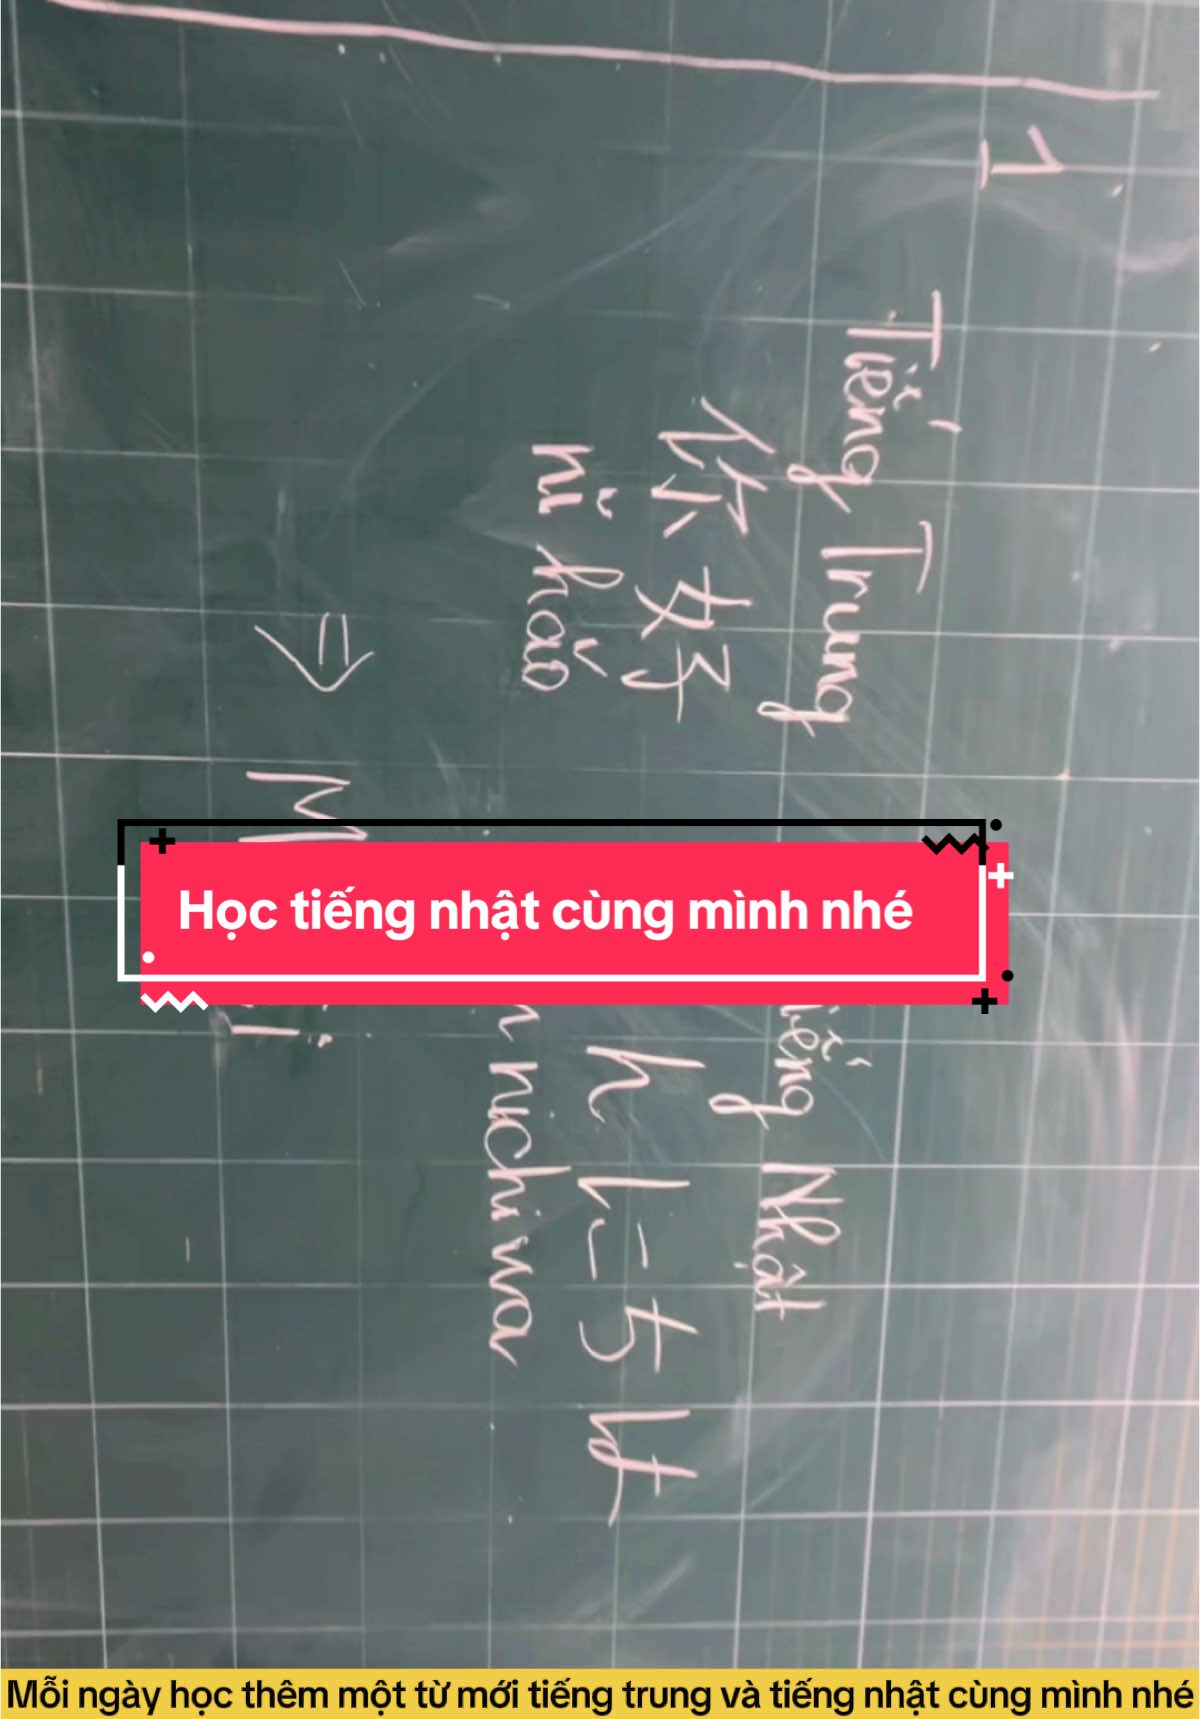 1
Tiếng Trung
你好
nǐ hǎo
iếng Nhật
んにちは
n nichiwa
⇒ M
Học tiếng nhật cùng mình nhé
Mỗi ngày học thêm một từ mới tiếng trung và tiếng nhật cùng mình nhé